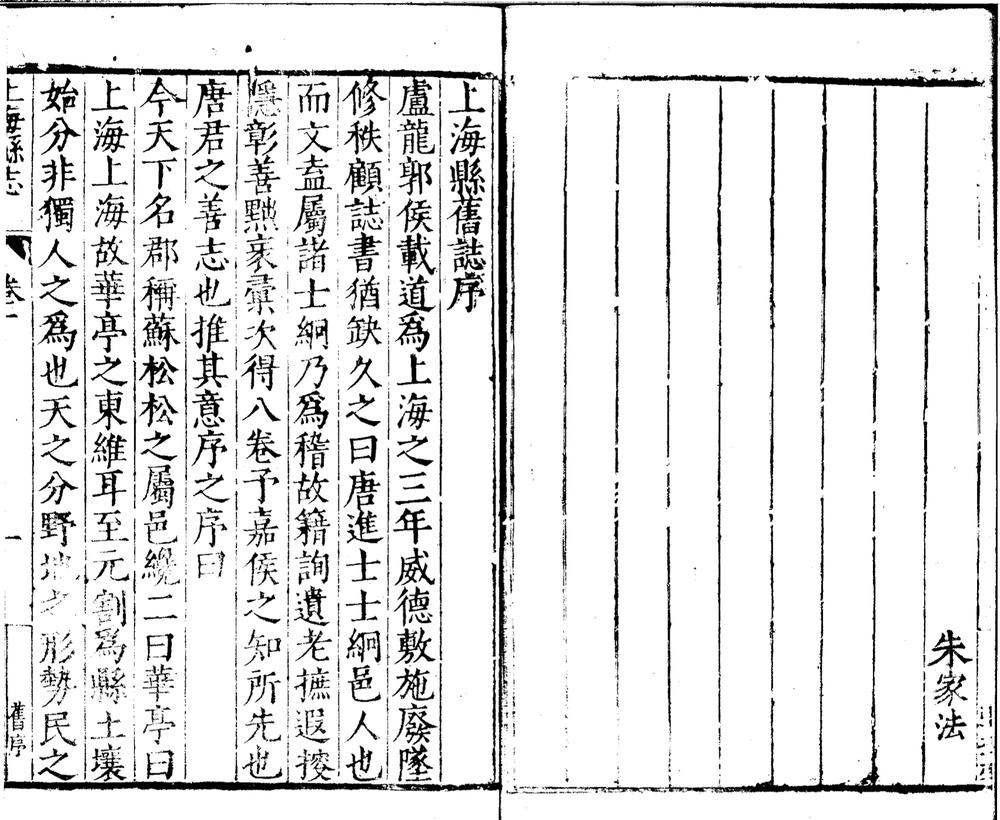 朱家法
上海縣舊誌序
盧龍郭侯載道爲上海之三年威德敷施廢墜
修秩顧誌書猶缺久之曰唐進士士絅邑人也
而文盍屬諸士絅乃爲稽故籍詢遺老摭遐揆
隱彰善黜衺彚次得八卷予嘉侯之知所先也
唐君之善志也推其意序之序曰
今天下名郡稱蘇松松之屬邑纔二曰華亭曰
上海上海故華亭之東維耳至元割爲縣土壤
始分非獨人之爲也天之分野地之形勢民之
上海縣志
卷一
一
舊序